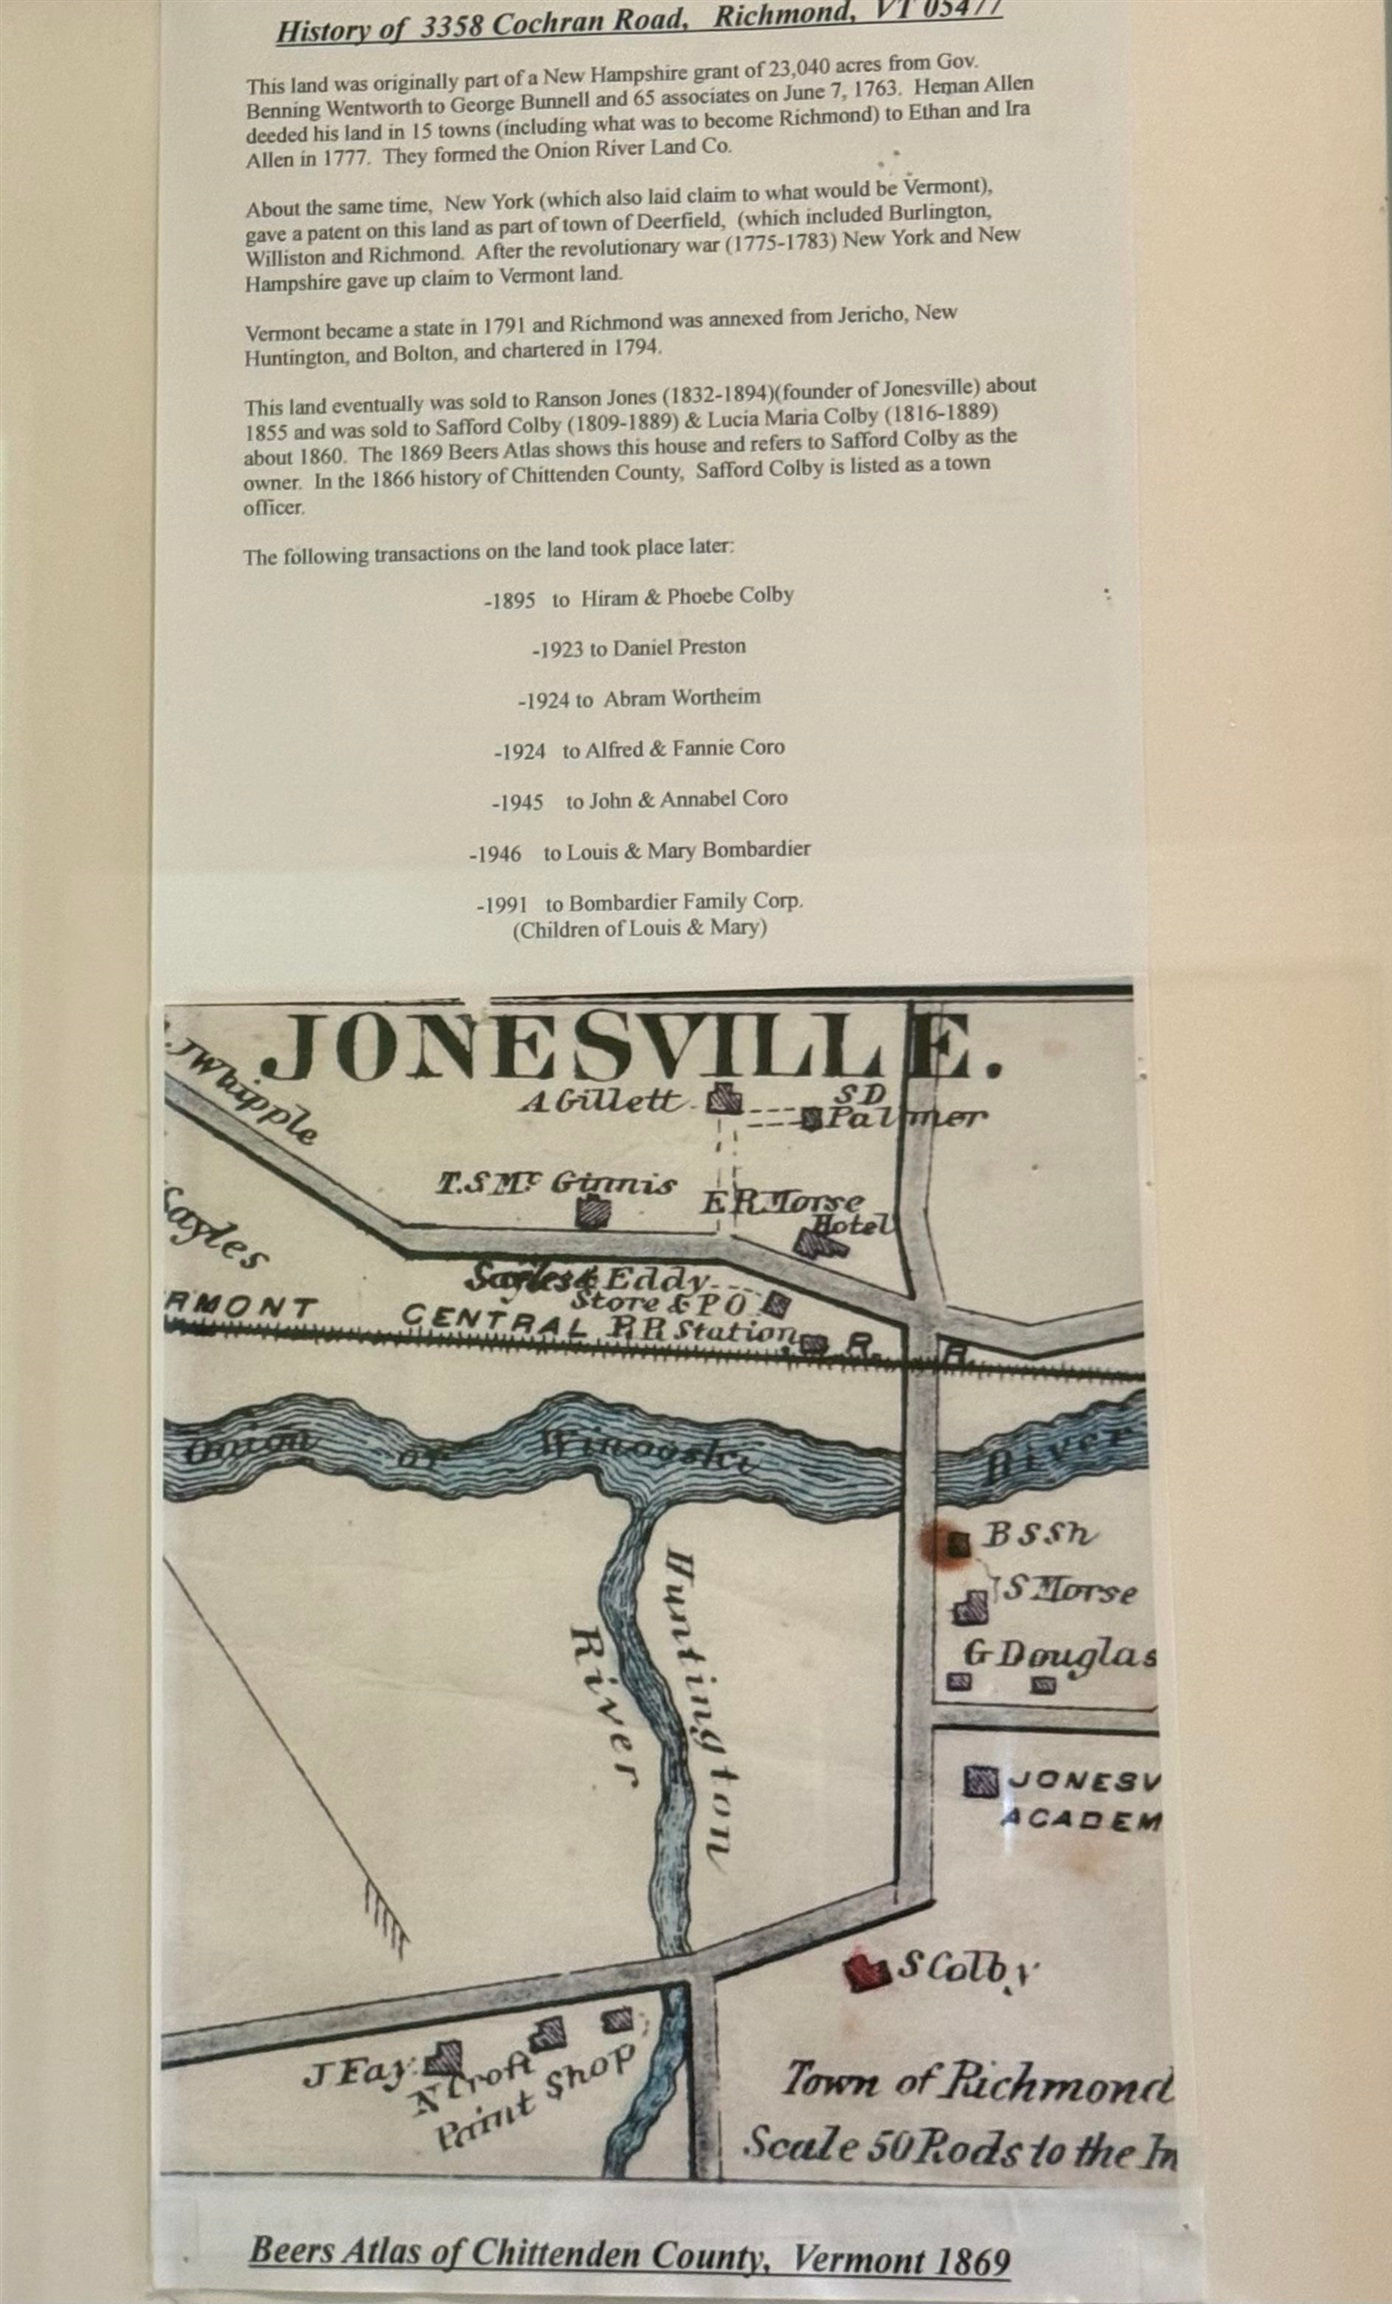 History of 3358 Cochran Road, Richmond, VT 05477
This land was originally part of a New Hampshire grant of 23,040 acres from Gov.
Benning Wentworth to George Bunnell and 65 associates on June 7, 1763. Heman Allen
deeded his land in 15 towns (including what was to become Richmond) to Ethan and Ira
Allen in 1777. They formed the Onion River Land Co.
About the same time, New York (which also laid claim to what would be Vermont),
gave a patent on this land as part of town of Deerfield, (which included Burlington,
Williston and Richmond. After the revolutionary war (1775-1783) New York and New
Hampshire gave up claim to Vermont land.
Vermont became a state in 1791 and Richmond was annexed from Jericho, New
Huntington, and Bolton, and chartered in 1794.
This land eventually was sold to Ranson Jones (1832-1894)(founder of Jonesville) about
1855 and was sold to Safford Colby (1809-1889) & Lucia Maria Colby (1816-1889)
about 1860. The 1869 Beers Atlas shows this house and refers to Safford Colby as the
owner. In the 1866 history of Chittenden County, Safford Colby is listed as a town
officer.
The following transactions on the land took place later:
-1895 to Hiram & Phoebe Colby
-1923 to Daniel Preston
-1924 to Abram Wortheim
-1924 to Alfred & Fannie Coro
-1945 to John & Annabel Coro
-1946 to Louis & Mary Bombardier
-1991 to Bombardier Family Corp.
(Children of Louis & Mary)
JONESVILLE.
J Whipple
A Gillett
S D
Palmer
T. S Mc Ginnis
E R Morse
Hotel
Sayles
Sayles & Eddy
Store & P O
RMONT CENTRAL R. R.
R R Station
Onion or Winooski River
B S Sh
S Morse
G Douglas
Huntington
River
JONESV
ACADEM
S Colby
J Fay
N Croft
Paint Shop
Town of Richmond
Scale 50 Rods to the In
Beers Atlas of Chittenden County, Vermont 1869